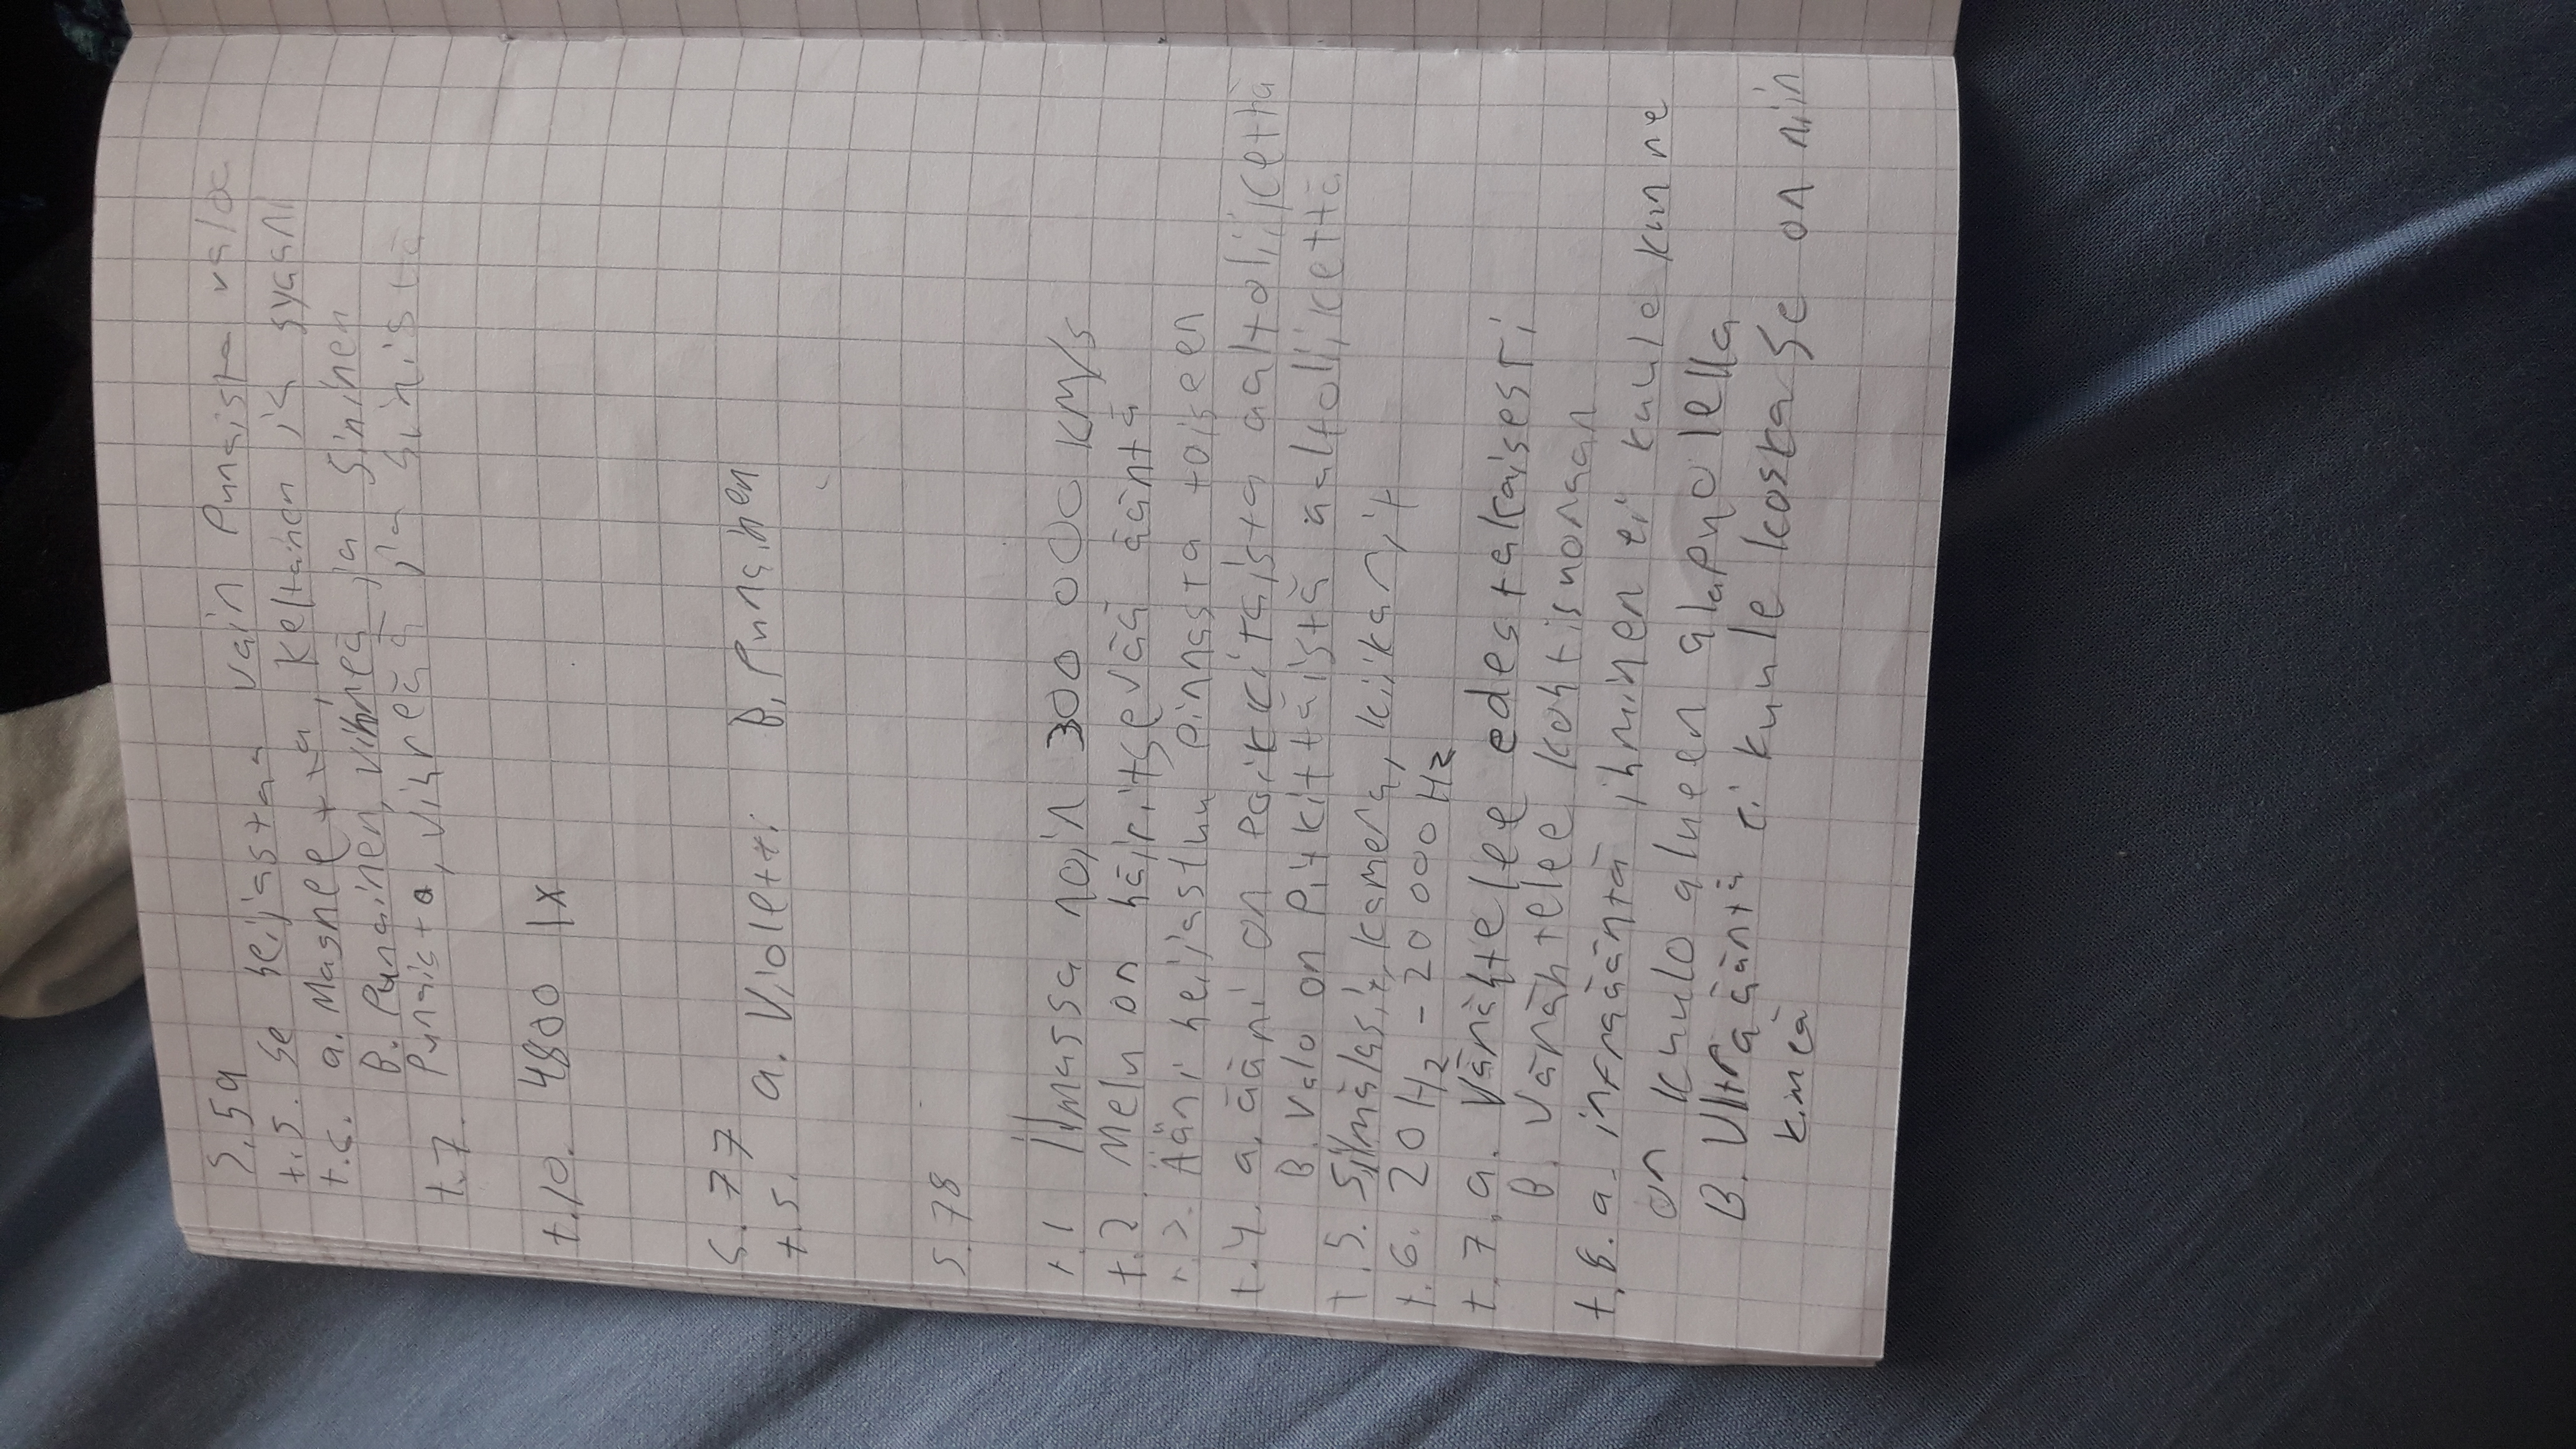 S.59
t.5. se heijastaa vain Punaista valoa
t.6. a. Magnetta, keltainen ja syaani
B. Punainen, vihreä ja sininen
t.7. Punaista, vihreää ja sinistä
t.10. 4800 lx
S.77
t.5. a. Violetti B. Punainen
S.78
t.1 ilmassa noin 300 000 KM/s
t.2 Melu on häiritsevää ääntä
t.3. Ääni heijastuu pinnasta toiseen
t.4. a. ääni on Poikkitaista aaltoliikettä
B. valo on Pitkittäistä aaltoliikettä
t.5. Silmälasit, kamera, kiikarit
t.6. 20 Hz - 20 000 Hz
t.7. a. Värähtelee edestakaisesti
B. värähtelee kohtisuoraan
t.8. a. infraääntä ihminen ei kuule kun ne
on kuulo alueen alapuolella
B. Ultraääntä ei kuule koska se on niin
kimeä